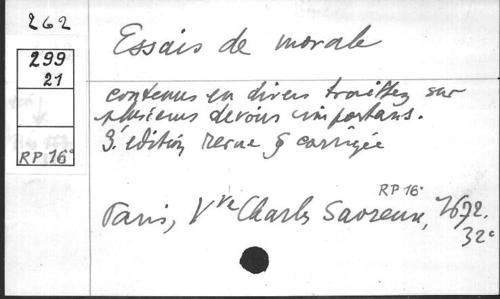 262
299
21
RP 16°
Essais de morale
contenus en divers traittez sur
plusieurs devoirs importans.
3e edition revue & corrigée
RP 16°
Paris, Vve Charles Savreux, 1672.
32°